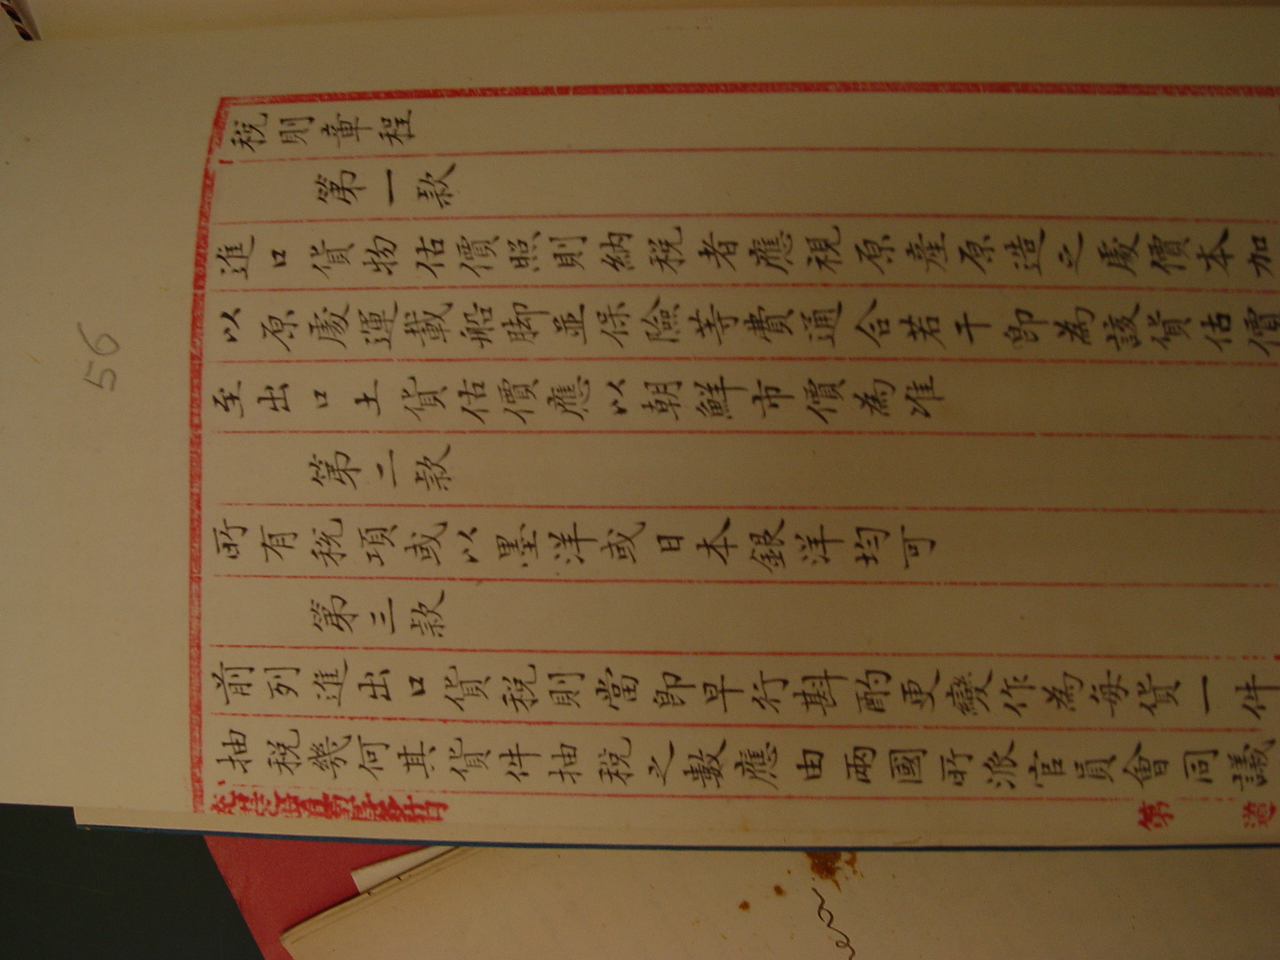 稅則章程
第一款
進口貨物估價照則納稅者應視原產原造之處價本加
以原處運載船脚並保險等費通合若干即為該貨估價
至出口土貨估價應以朝鮮市價為准
第二款
所有稅項或以墨洋或日本銀洋均可
第三款
前列進出口貨稅則當即早行斟酌更變作為每貨一件
抽稅幾何其貨件抽稅之數應由兩國所派官員會同議
第 道
56